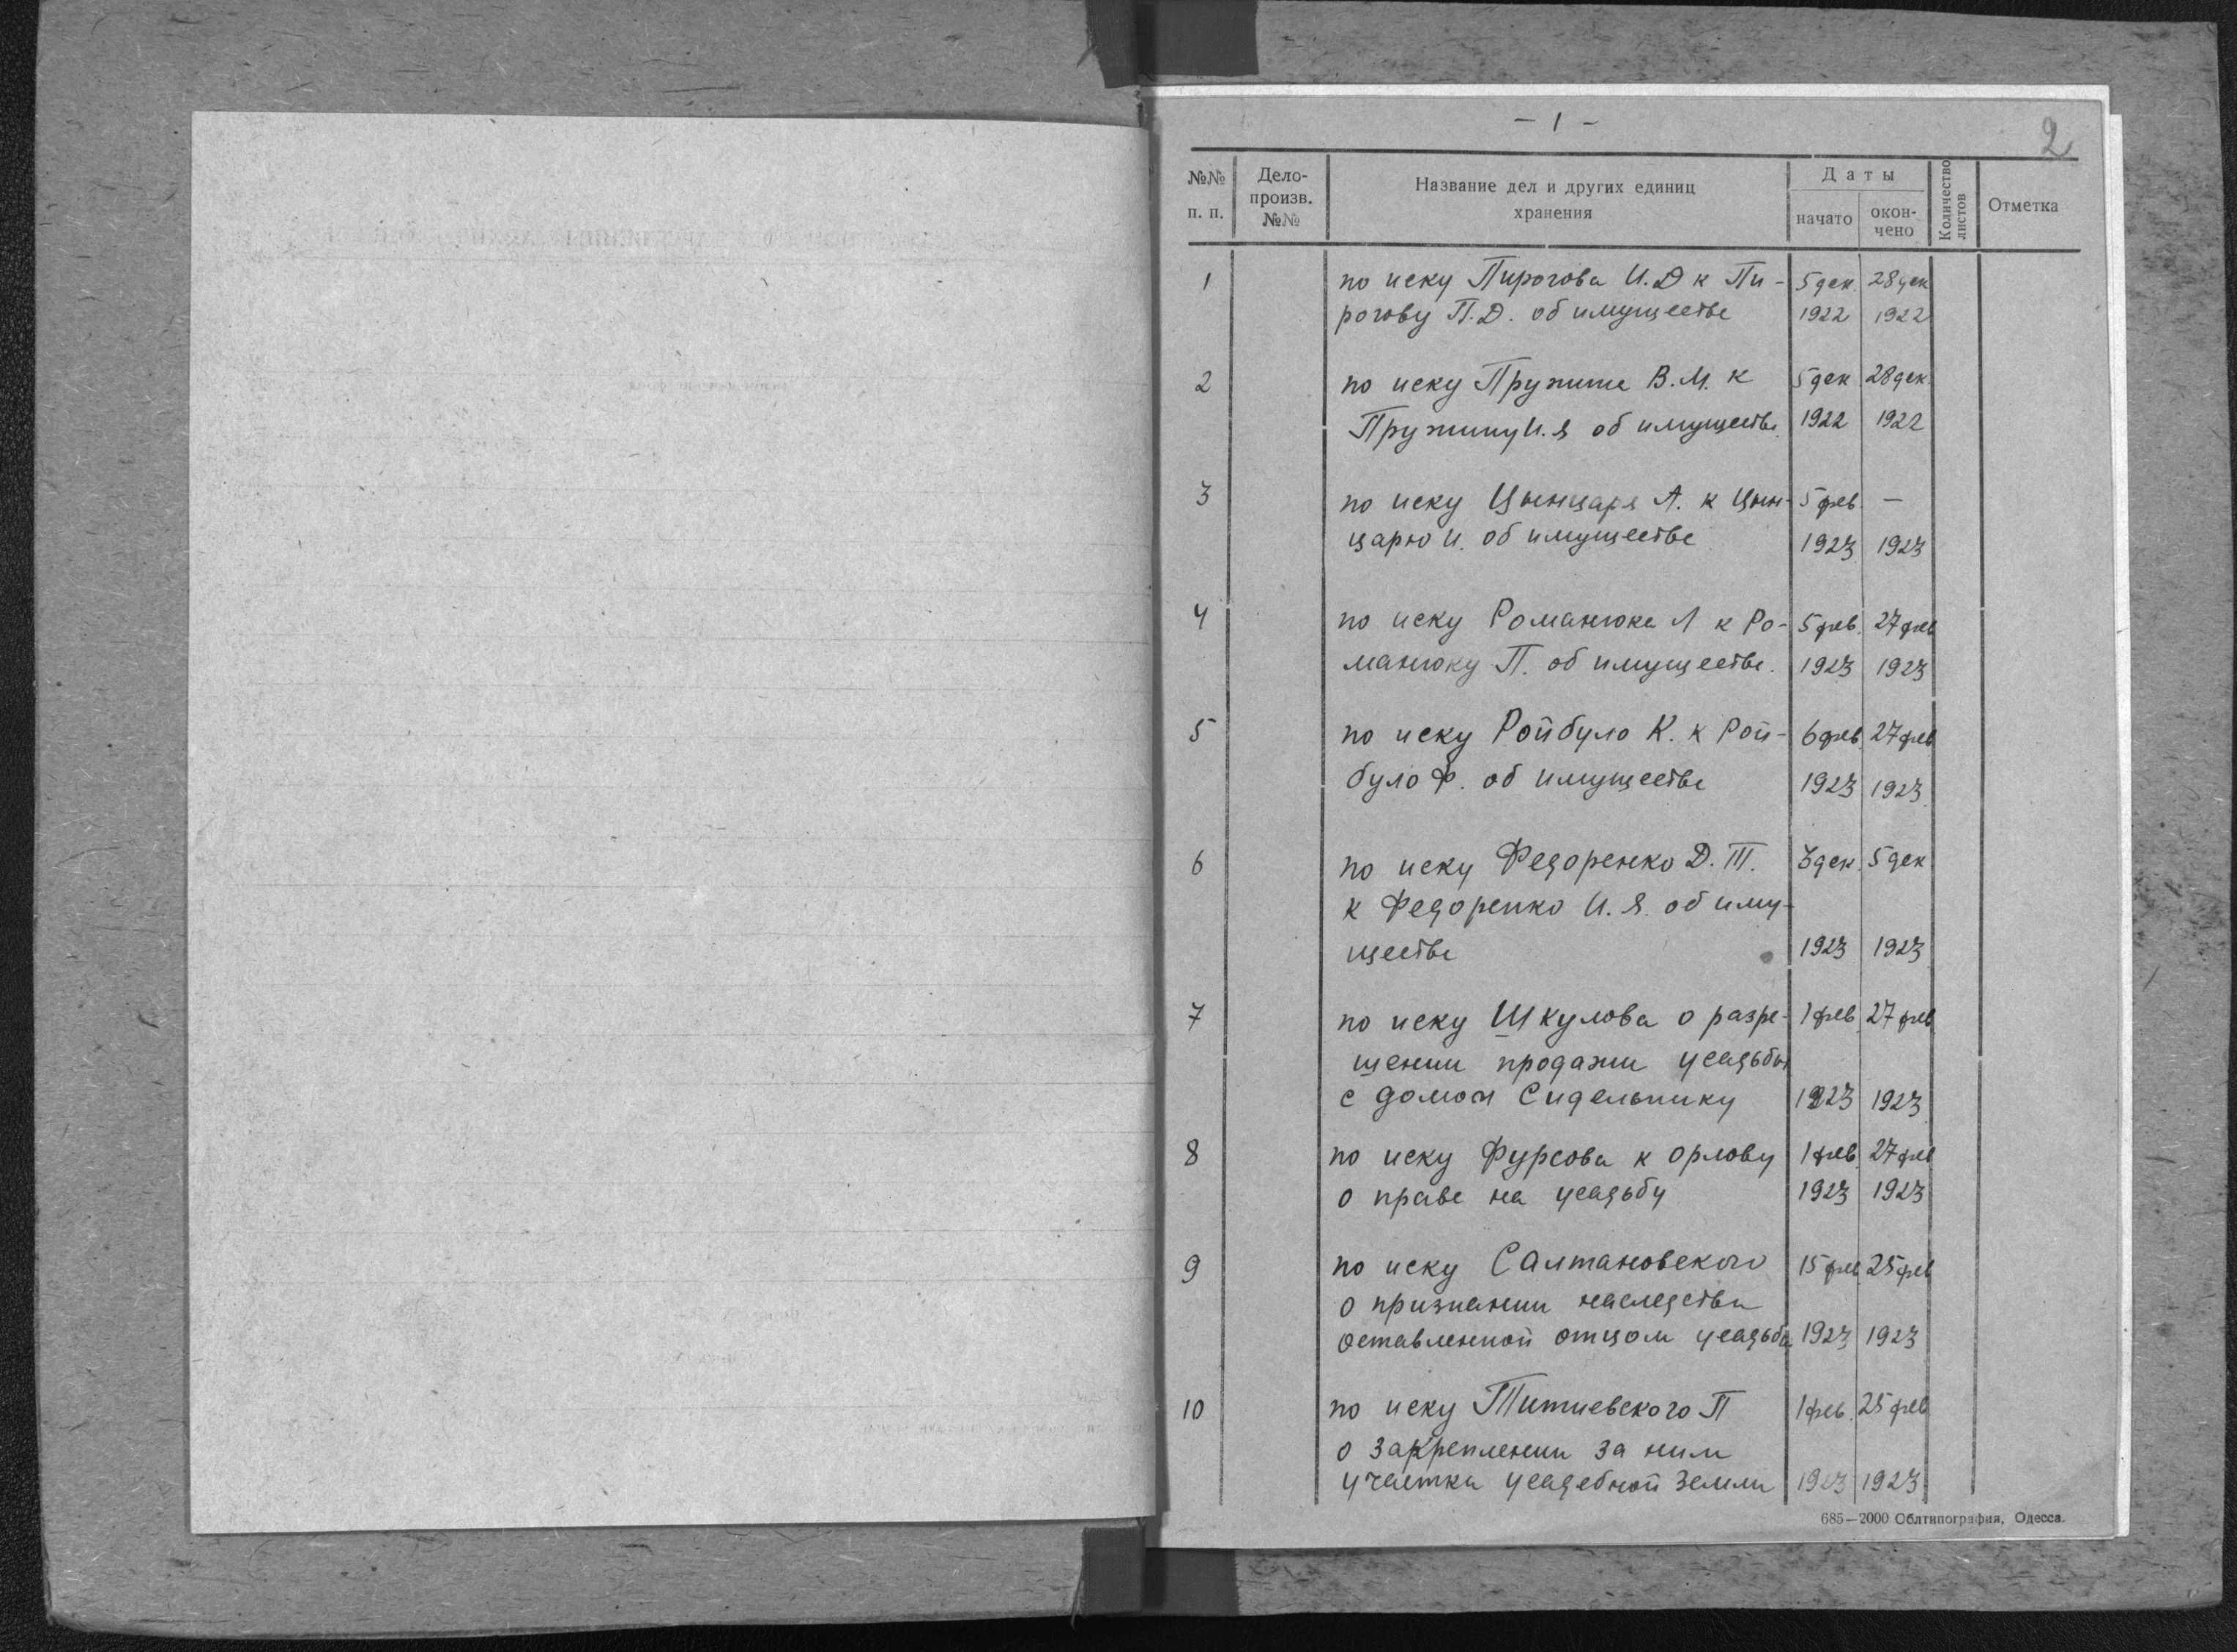 - 1 -
2
№№ п. п. Дело-произв. №№ Название дел и других единиц хранения Даты начато окон-чено Количество листов Отметка
1 по иску Пирогова И.Д к Пи- 5 дек. 28 дек
рогову П.Д. об имуществе 1922 1922
2 по иску Пружина В.М. к 5 дек 28 дек.
Пружину И.Я об имуществе. 1922 1922
3 по иску Цынцаря А. к Цын- 5 фев. —
царю И. об имуществе 1923 1923
4 по иску Романюка Л к Ро- 5 фев. 27 фев
манюку П. об имуществе. 1923 1923
5 по иску Ройбуло К. к Рой- 6 фев. 27 фев
було Ф. об имуществе 1923 1923.
6 по иску Федоренко Д.Т. 3 дек. 5 дек
к Федоренко И.Я. об иму-
ществе 1923 1923
7 по иску Шкулова о разре- 1 фев 27 фев
шении продажи усадьбы
с домом Сидельнику 1923 1923
8 по иску Фурсова к Орлову 1 фев. 27 фев
о праве на усадьбу 1923 1923
9 по иску Салтановского 15 фев 25 фев
о признании наследства
оставленной отцом усадьбы 1923 1923
10 по иску Титиевского П 1 фев. 25 фев
о закреплении за ним
участка усадебной земли 1923 1923
685—2000 Облтипография, Одесса.